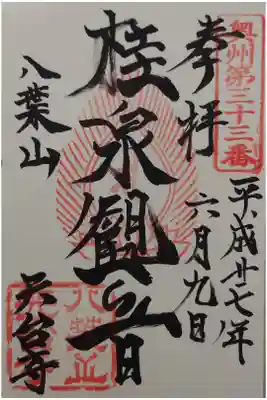 奥州第三十三番
奉拝
平成廿七年
六月九日
桂泉観世音
八葉山
天台寺